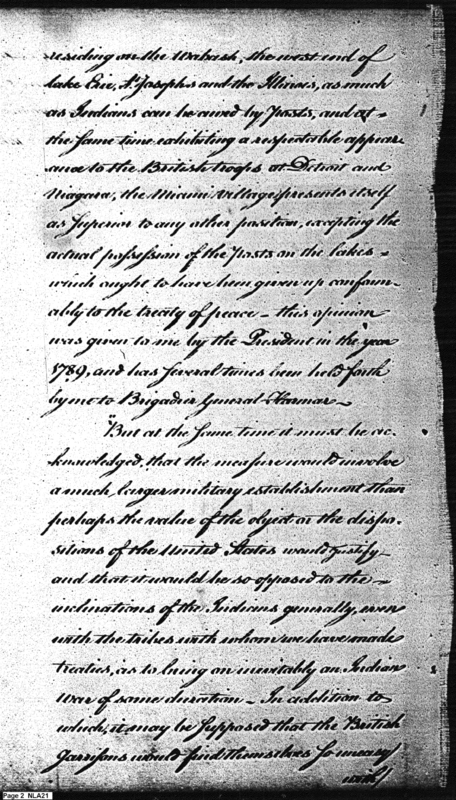 residing on the Wabash, the west end of
lake Erie, St Josephs and the Illinois, as much
as Indians can be awed by Posts, and at
the same time exhibiting a respectable appear
ance to the British troops at Detroit and
Niagara, the Miami village presents itself
as superior to any other position, excepting the
actual possession of the Posts on the lakes
which ought to have been given up conform-
ably to the treaty of peace – this opinion
was given to me by the President in the year
1789, and has several times been held forth
by me to Brigadier General Harmar –
"But at the same time it must be ac-
knowledged, that the measure would involve
a much larger military establishment than
perhaps the value of the object or the dispo-
sitions of the United States would justify –
and that it would be so opposed to the
inclinations of the Indians generally, even
with the tribes with whom we have made
treaties, as to bring on inevitably an Indian
War of some duration – In addition to
which, it may be supposed that the British
Garrisons would find themselves so uneasy
with
Page 2 NLA21